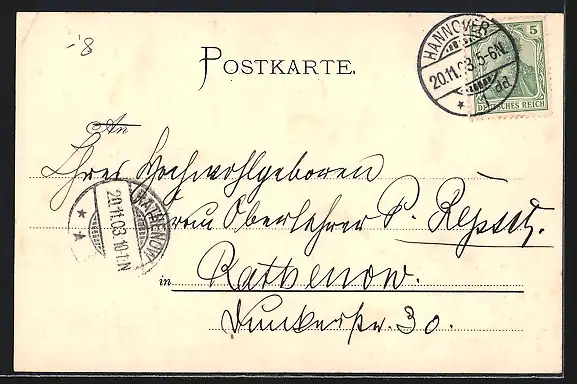 -8
POSTKARTE.
HANNOVER
20.11.03. 5-6N.
1 dd
5
DEUTSCHES REICH
An
Ihres Hochwohlgeboren
Herrn Oberlehrer P.
RATHENOW
20.11.03. 10-11N
in Rathenow.
Dunkerstr. 30.